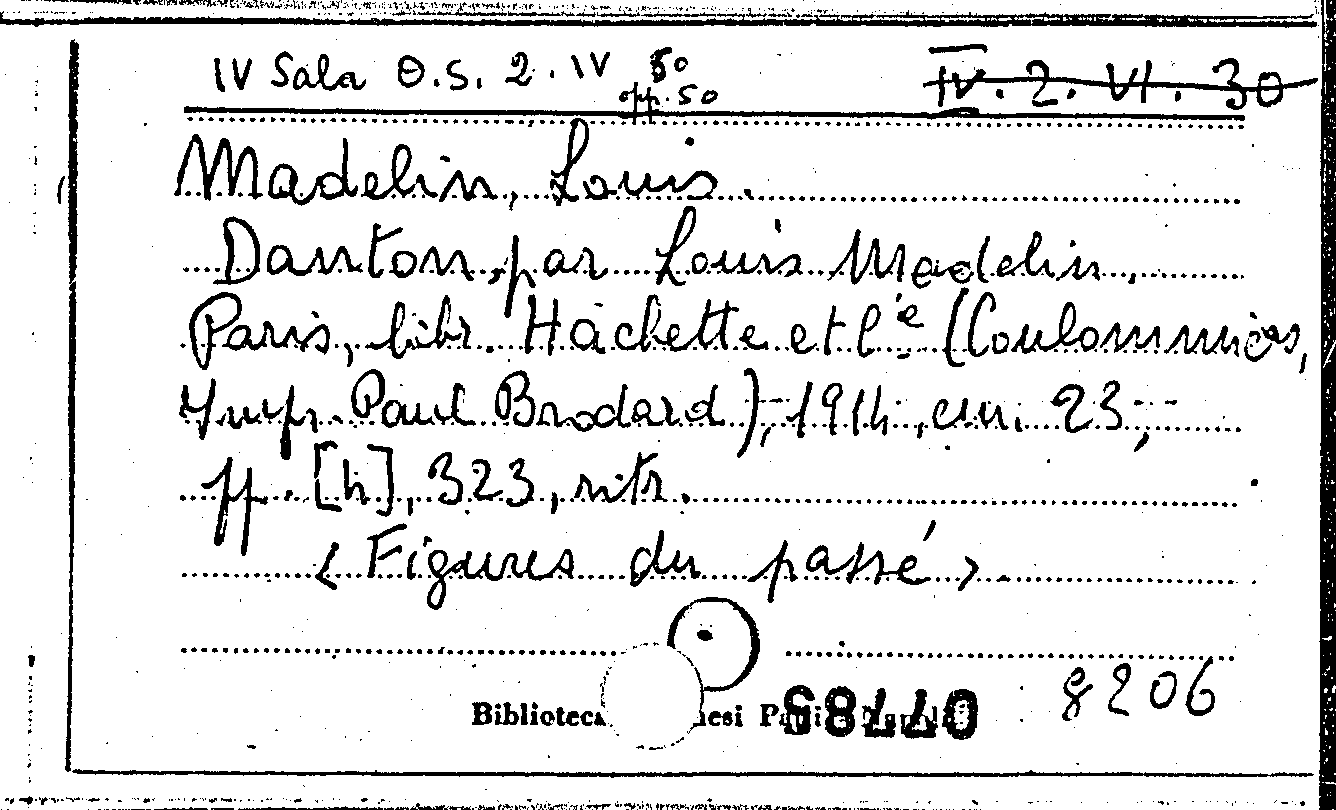 IV Sala O.S. 2. IV 50 IV. 2. VI. 30
opp. 50
Madelin, Louis.
Danton, par Louis Madelin,
Paris, libr. Hachette et C.ie (Coulommiers,
Impr. Paul Brodard), 1914, cm. 23,
pp. [4], 323, ritr.
< Figures du passé >
Biblioteca
8206